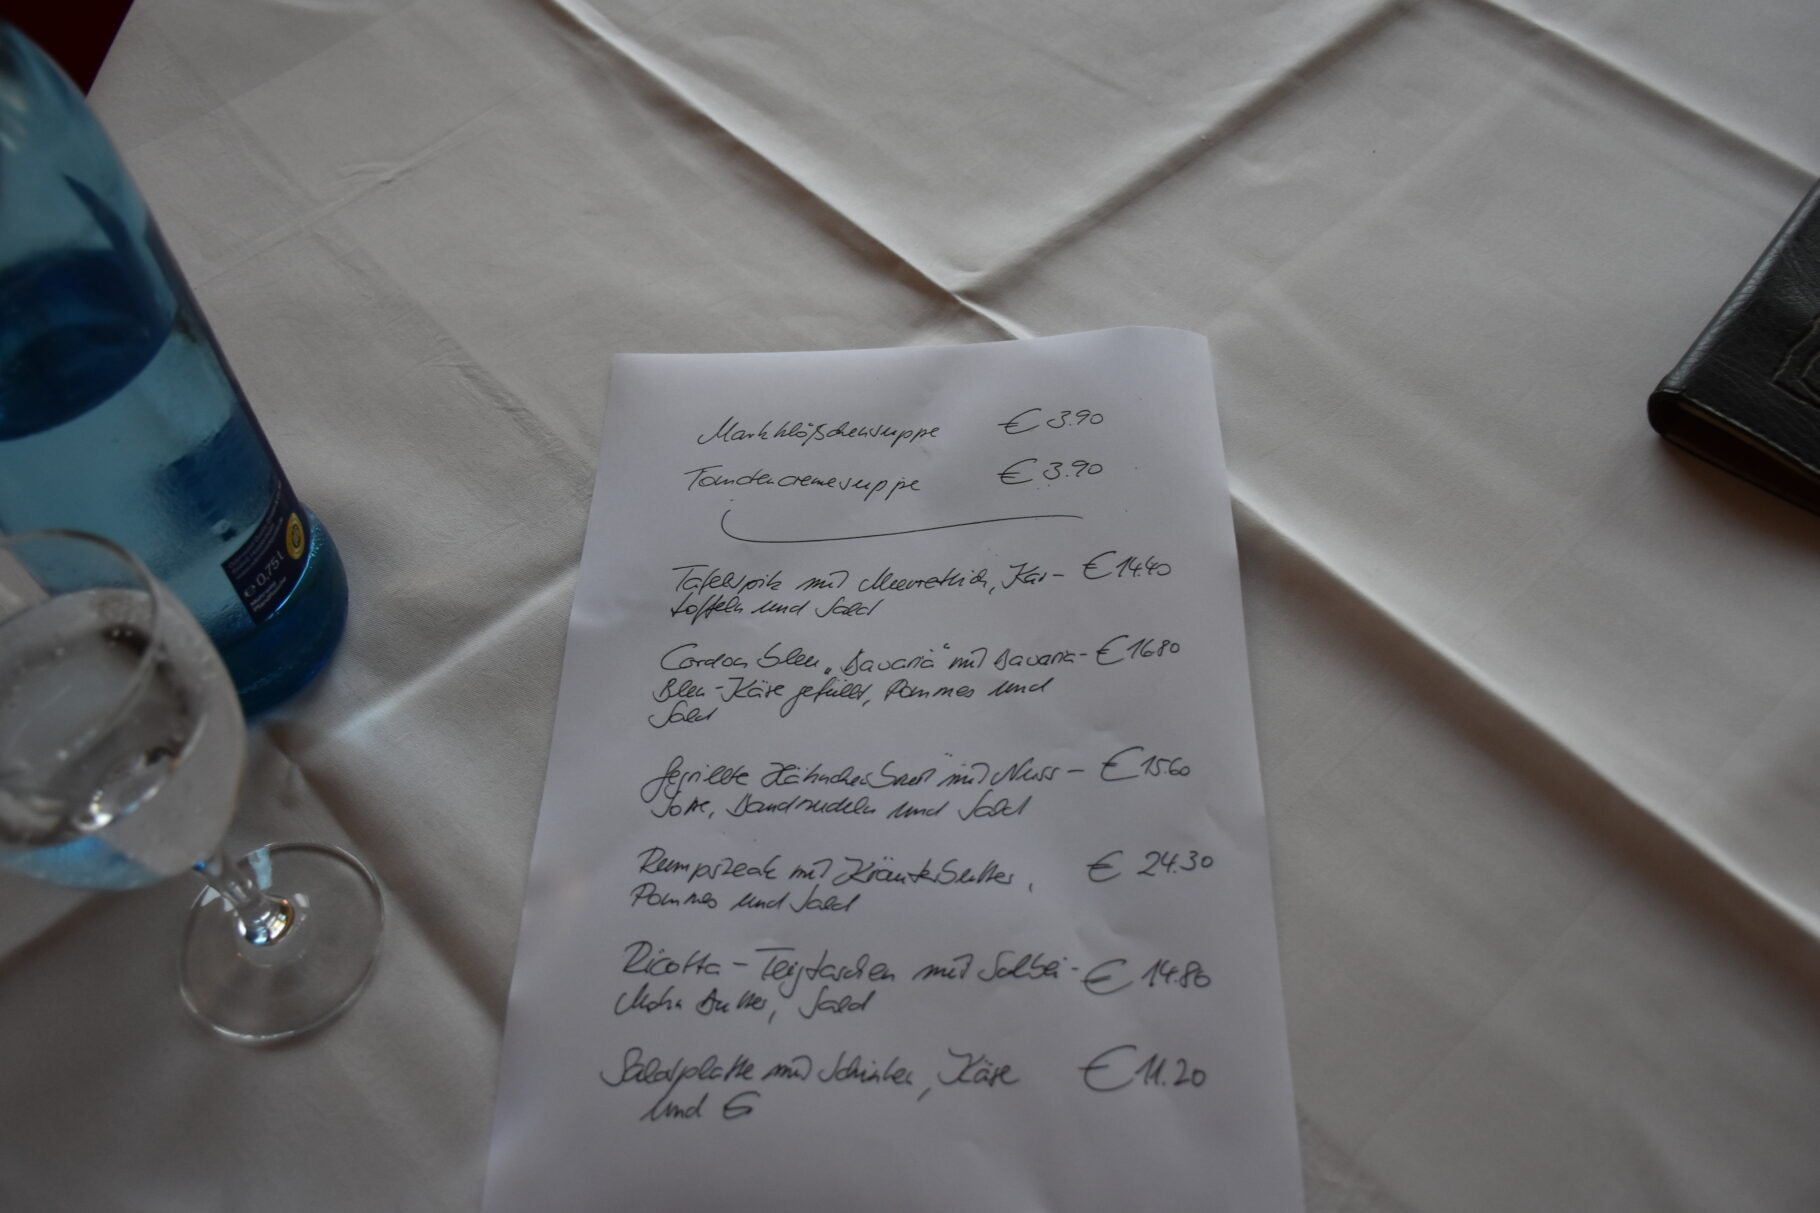 Markklößchensuppe € 3.90
Tomatencremesuppe € 3.90
Tafelspitz mit Meerrettich, Kar- € 14.40
toffeln und Salat
Cordon bleu „Bavaria" mit Bavaria- € 16.80
Bleu-Käse gefüllt, Pommes und
Salat
Gegrillte Hähnchenbrust mit Nuss- € 15.60
Soße, Bandnudeln und Salat
Rumpsteak mit Kräuterbutter, € 24.30
Pommes und Salat
Ricotta-Teigtaschen mit Salbei- € 14.80
Mohn Butter, Salat
Salatplatte mit Schinken, Käse € 11.20
und Ei
e 0,75 l